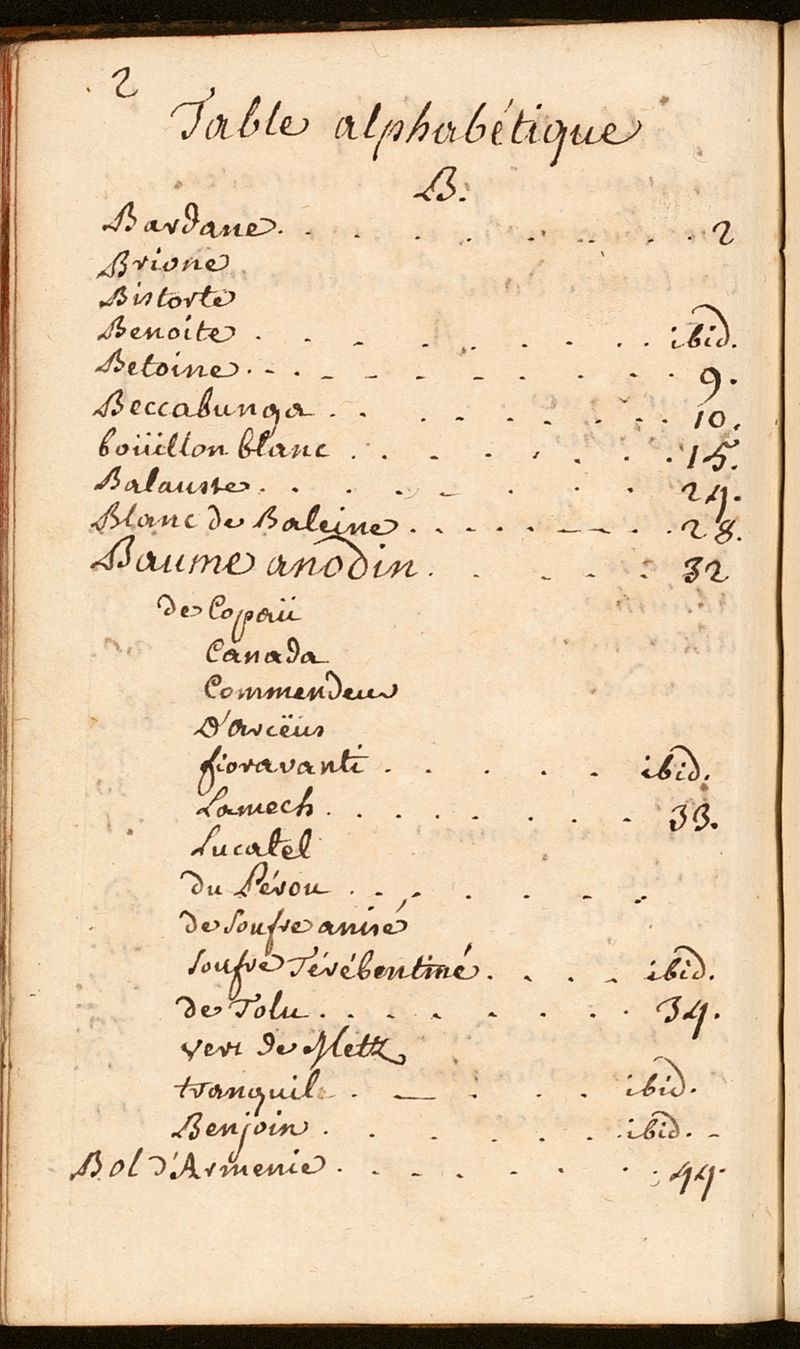 2
Table alphabétique
B.
Bardane. . . . . . . . . . 2
Brione
Bistorte
Benoite . . . . . . . . . ibid.
Betoine . . . . . . . . . 9.
Beccabunga . . . . . . . . 10.
boüillon blanc . . . . . . . . 15.
Balauste. . . . . . . . 24.
Blanc de Baleine. . . . . . . . 28.
Baume anodin. . . . . 32
de Copaü
Canada
Commendeur
D'arcëus
fioravanti . . . . . ibid.
Lamech . . . . . . . . 33.
Lucatel
du Pérou . . . . . . .
de Soufre anisé
Soufre Térébentiné . . . . ibid.
de Tolu . . . . . . . . 34.
vert de Metz
tranquile . — . . . ibid.
Benjoin . . . . . . . ibid. -
Bol d'Armenie . . . . . . . . 44.